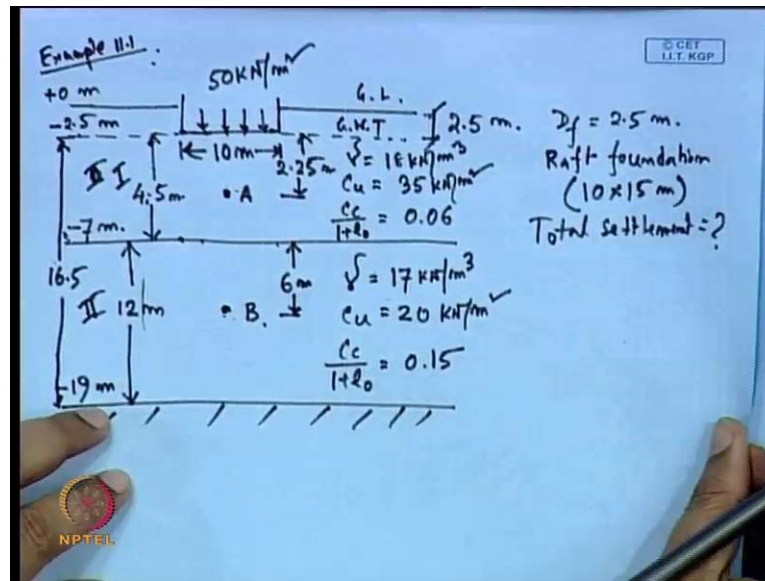 Example 11.1
© CET
I.I.T. KGP
50 KN/m² ✓
+0 m
G.L.
-2.5 m
G.W.T
2.5 m.
10 m
2.25 m
γ = 18 KN/m³
I
4.5 m
• A
Cu = 35 KN/m² ✓
Cc/1+e0 = 0.06
-7 m.
16.5
II
12 m
6 m
• B.
γ = 17 KN/m³
Cu = 20 KN/m² ✓
Cc/1+e0 = 0.15
-19 m
Df = 2.5 m.
Raft foundation
(10 × 15 m)
Total settlement = ?
NPTEL